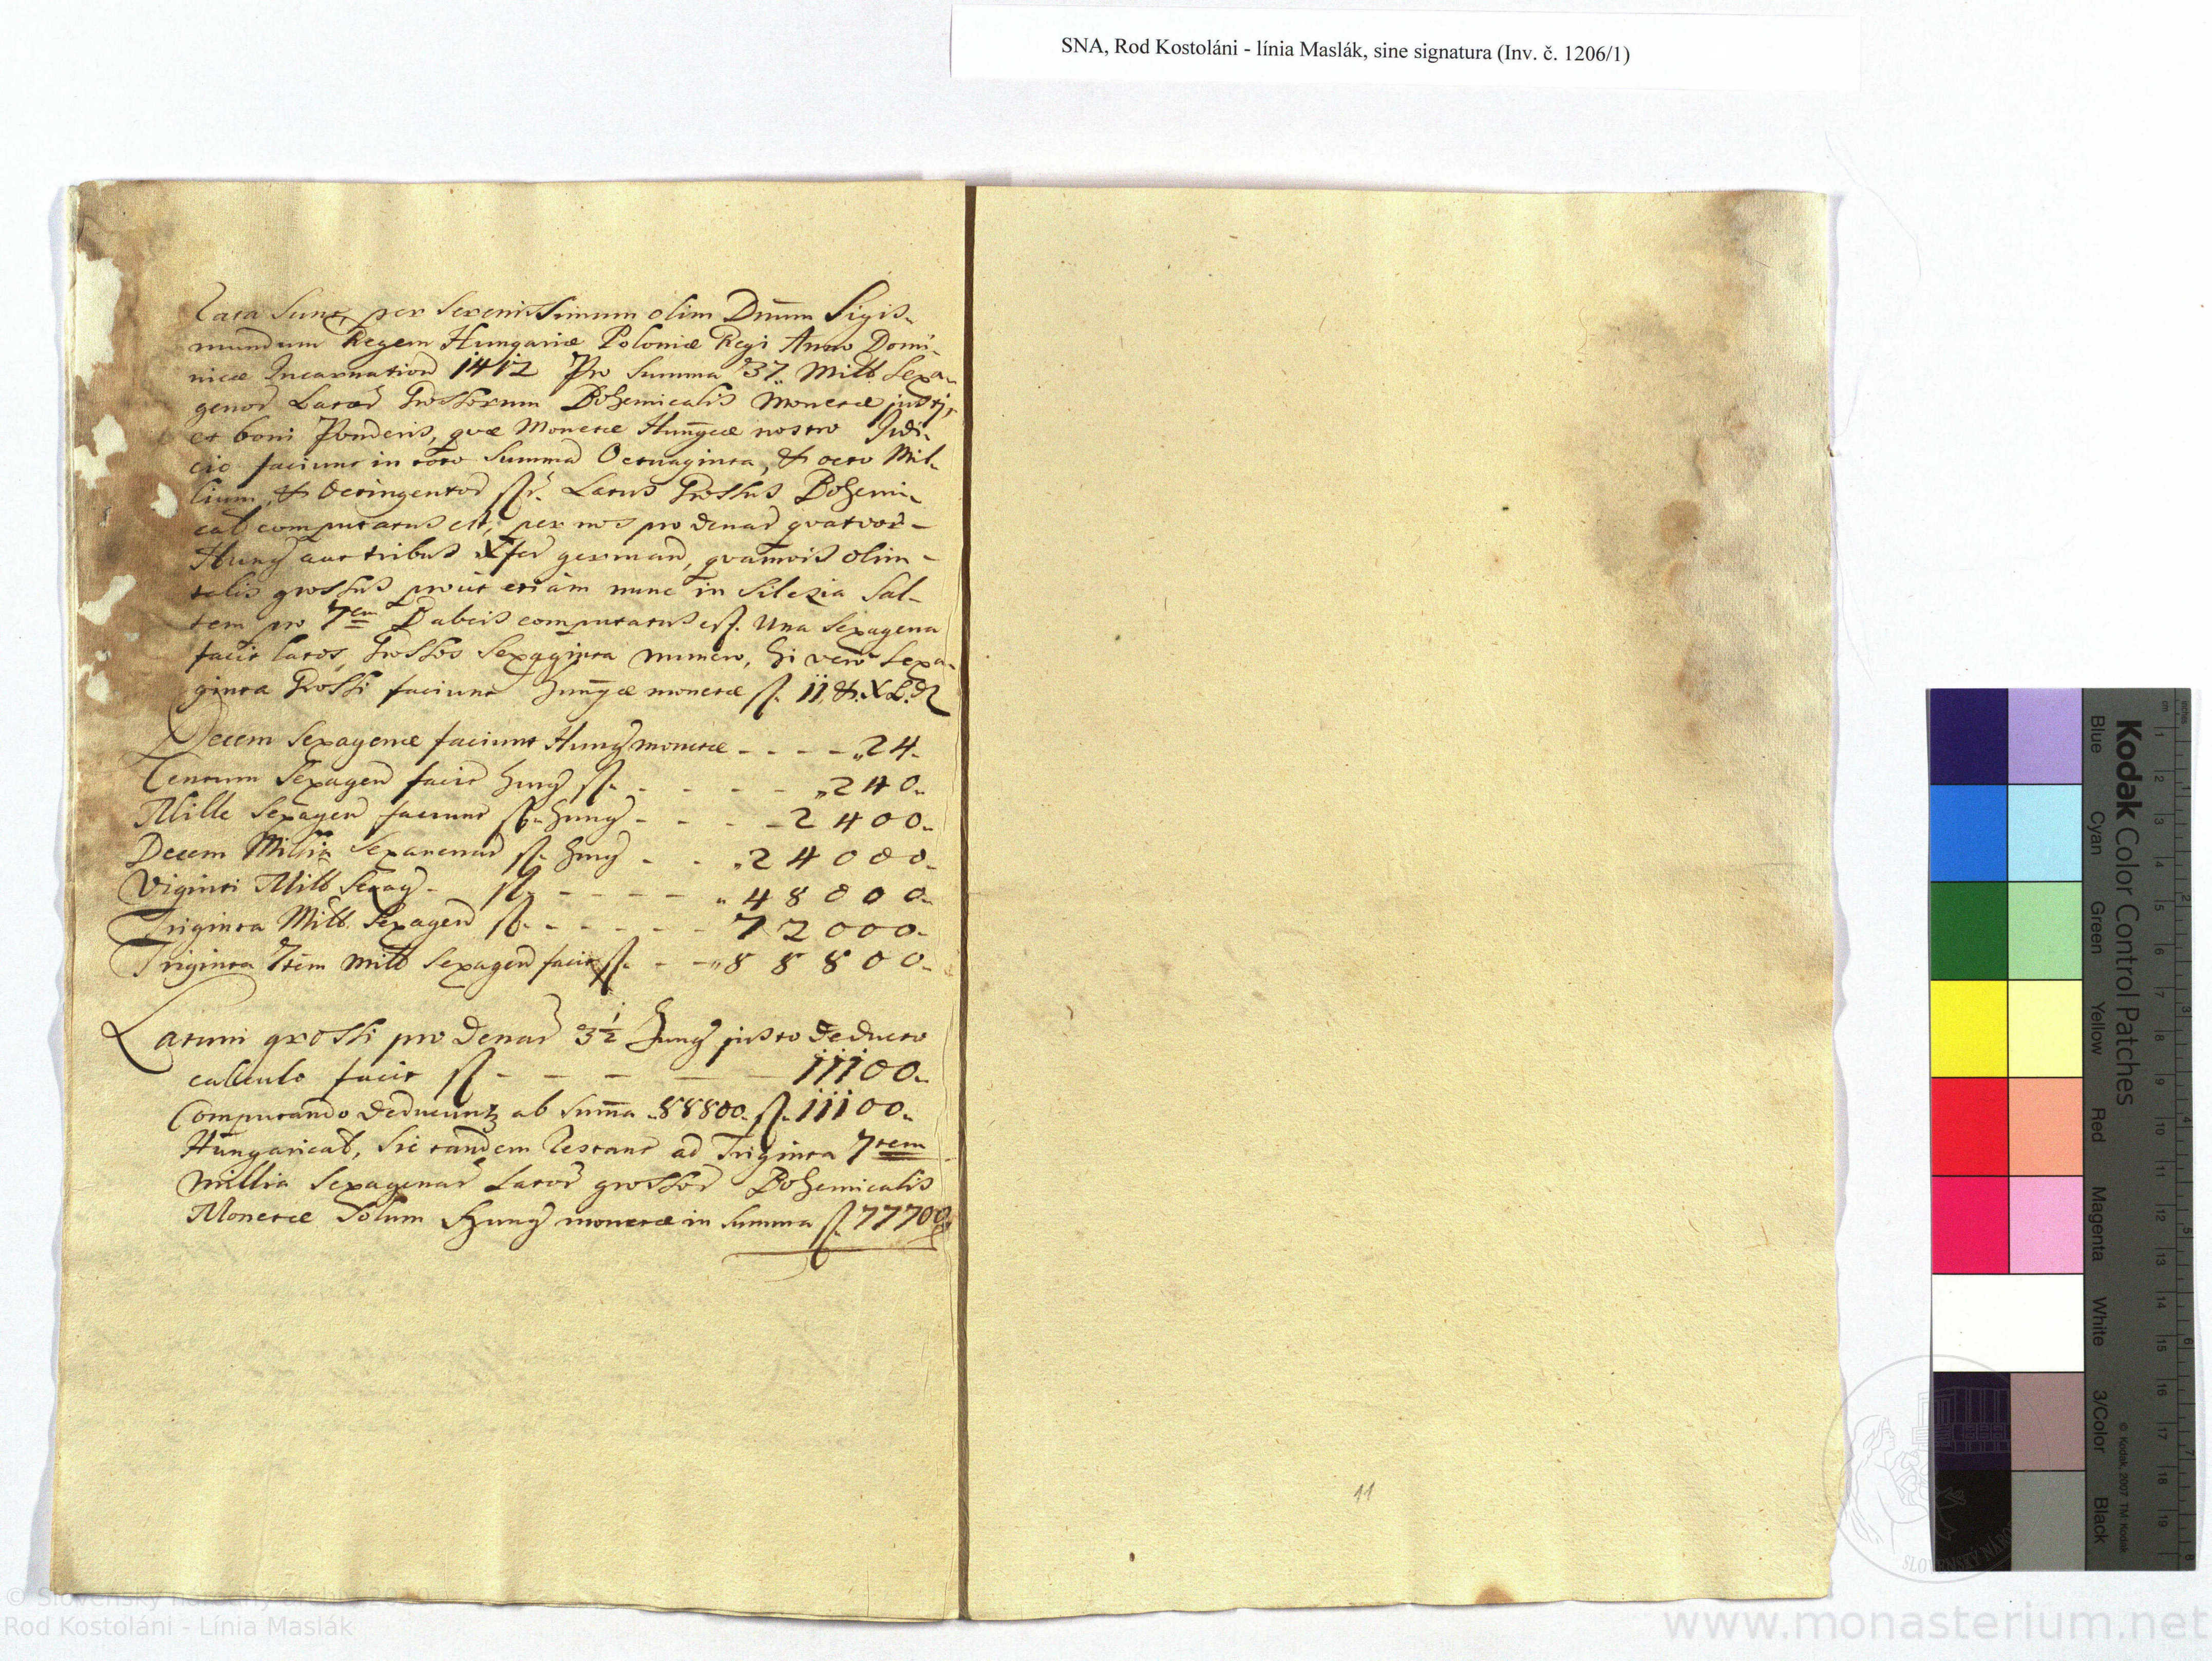 SNA, Rod Kostoláni - línia Maslák, sine signatura (Inv. č. 1206/1)
cata sunt, per Serenissimum olim Dnūm Sigis-
mundum Regem Hungariæ Poloniæ Regi Anno Domi-
nicæ Incarnation 1412 Pro Summa 37. Mill. Sexa-
genor Lator Grossorum Bohemicalis Monetæ justi,
et boni Ponderis, quæ Monetæ Hungcæ nostro Judi-
cio faciunt in toto Summa Octuaginta, & octo Mil-
lium, & Octingentor fl. Latus Grossus Bohemi-
cal computatus est, per nos pro denar qvatvor-
Hung aut tribus Xfer german, qvamvis olim-
talis grossus prout etiàm nunc in Silezia Sal-
tem pro 7em Babcis computatus est. Una Sexagena
facit latos, Grossos Sexaginta numero, hi vero Sexa-
ginta Grossi faciunt hungcæ monetæ fl. ii. &. XL. d
Decem Sexagenæ faciunt Hung monetæ - - - - „24-
Centum Sexagen facit hung fl. - - - - - „240„
Mille Sexagen faciunt fl. hung - - - - 2400„
Decem Millia Sexagenar fl. hung - - „24000-
Viginti Mill Sexag - fl. - - - - - „48000„
Triginta Mill. Sexagen fl. - - - - - - 72000-
Triginta 7tem mill Sexagen facit fl. - - „88800„
Latuni grossi pro denar 3½ hung justo deducto
calculo facit fl - - - - - 11100„
Computando deducuntz ab Summa „88800„ fl. 11100„
Hungarical, Sic tandem restant ad Triginta 7tem
millia Sexagenar Lator grossor Bohemicalis
Monetæ Solum Hung monetæ in Summa fl. 77700
11
Kodak Color Control Patches
Blue
Cyan
Green
Yellow
Red
Magenta
White
3/Color
Black
© Kodak, 2007 TM: Kodak
© Slovenský národný archív
Rod Kostoláni - Línia Maslák
www.monasterium.net